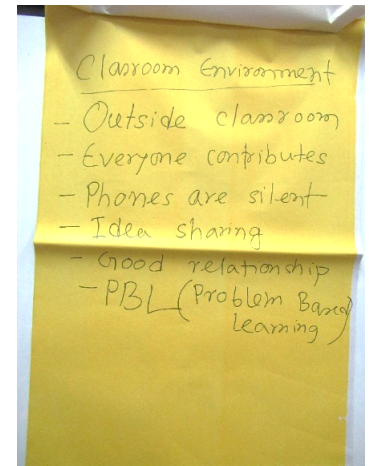 Classroom Environment
- Outside classroom
- Everyone contributes
- Phones are silent
- Idea sharing
- Good relationship
- PBL (Problem Based
Learning)